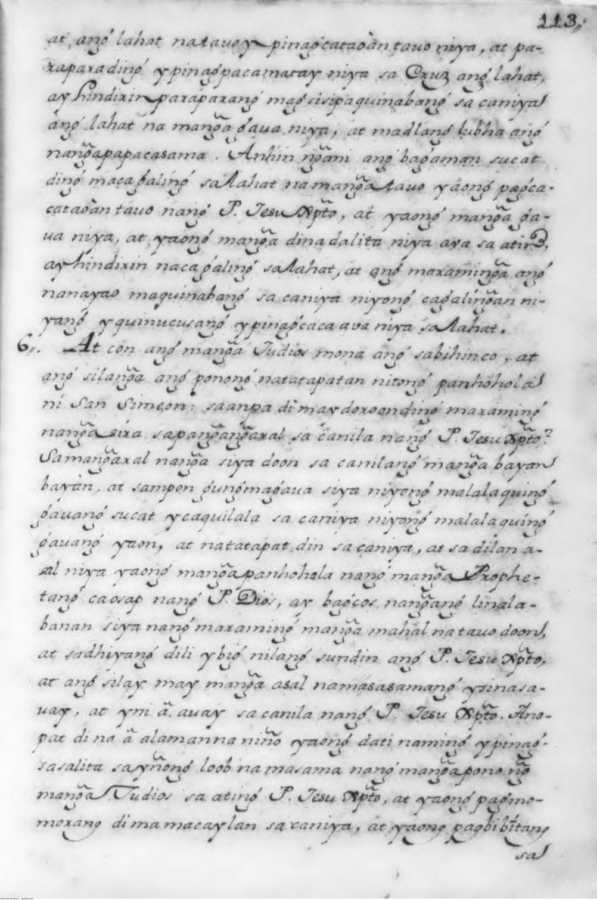 113,
at, ang̃ lahat na tavoy pinag̃cataoàn tavo niya, at pa-
raparading̃ ypinag̃pacamatay niya sa Cruz ang̃ lahat,
ay hindirin paraparang̃ mag̃sisipaquinabang̃ sa caniya
ang̃ lahat na mang̃a g̃ava niya, at madlang̃ lubha ang̃
nang̃apapacasama. Anhin ng̃ani ang̃ bag̃aman sucat
ding̃ macag̃aling̃ sa lahat na mang̃a tavo yaong̃ pag̃ca-
cataoàn tavo nang̃ P. Jesu Xp̃to, at yaong̃ mang̃a g̃a-
va niya, at yaong̃ mang̃a dinadalita niya ava sa atin,
ay hindirin nacag̃aling̃ sa lahat, at ang̃ maraming̃a ang̃
nanayao maquinabang̃ sa caniya niyong̃ cag̃aling̃an ni-
yang̃ yquinucusang̃ ypinag̃cacaava niya sa lahat.
6,. At con ang̃ mang̃a Judios mona ang̃ sabihin co, at
ang̃ silang̃a ang̃ ponong̃ natatapatan nitong̃ panhohola
ni San Simeon: saanpa di may doroonding̃ maraming̃
nang̃asira sa pang̃ang̃aral sa canila nang̃ P. Jesu Xp̃to?
Samang̃aral nang̃a siya doon sa canilang̃ mang̃a bayan
bayàn, at sampon g̃ung̃mag̃ava siya niyong̃ malalaquing̃
g̃avang̃ sucat ycaquilala sa caniya niyong̃ malalaquing̃
g̃avang̃ yaon, at natatapat din sa caniya, at sa dilan a-
ral niya yaong̃ mang̃a panhohola nang̃ mang̃a Prophe-
tang̃ caosap nang̃ P. Dios, ay bag̃cos nang̃ang̃ linala-
banan siya nang̃ maraming̃ mang̃a mahal na tavo doon,
at sadhiyang̃ dili ybig̃ nilang̃ sundin ang̃ P. Jesu Xp̃to,
at ang̃ silay may mang̃a asal na masasamang̃ ysinasa-
vay, at yni ã avay sa canila nang̃ P. Jesu Xp̃to. Ano-
pat di na ã alaman na nino yaong̃ dati naming̃ ypinag̃-
sasalita sa ynong̃ loob na masama nang̃ mang̃a pono ng̃
mang̃a Judios sa ating̃ P. Jesu Xp̃to, at yaong̃ pag̃mo-
morang̃ di mamacaylan sa caniya, at yaong̃ pagbibitang̃
sa